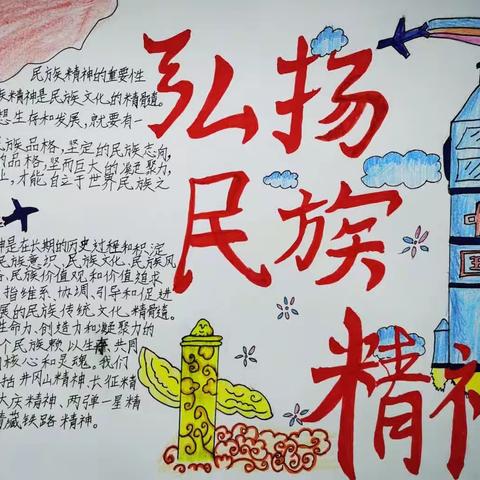 弘扬
民族
精神
民族精神的重要性
族精神是民族文化的精髓。
想生存和发展,就要有
民族品格,坚定的民族志向,
的品格,坚而巨大的凝聚力,
上,才能自立于世界民族之
神是在长期的历史过程和积淀
民族意识、民族文化、民族风
民族价值观和价值追求
指维系、协调、引导和促进
展的民族传统文化精髓。
生命力、创造力和凝聚力的
个民族赖以生存共同
核心和灵魂。我们
括井冈山精神、长征精
大庆精神、两弹一星精
青藏铁路精神。